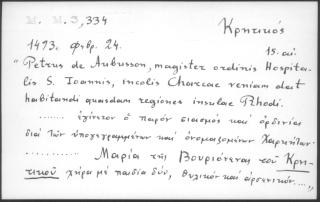 M. M. 3, 334
Κρητικός
1473. φεβρ. 24.
15. αἰ.
"Petrus de Aubusson, magister ordinis Hospita-
lis S. Ioannis, incolis Charcae veniam dat
habitandi quasdam regiones insulae Rhodi.
........ ἐγίνετον ὁ παρὸν διασμὸς καὶ ὀρδινία
διὰ τῶν ὑπογεγραμμένων καὶ ὀνομαζομένων Χαρκητῶν·
........ Μαρία τῆς Βουριότενας τοῦ Κρη-
τικοῦ χήρα μὲ παιδία δύο, θυλικὸν καὶ ἀρσενικόν....,"